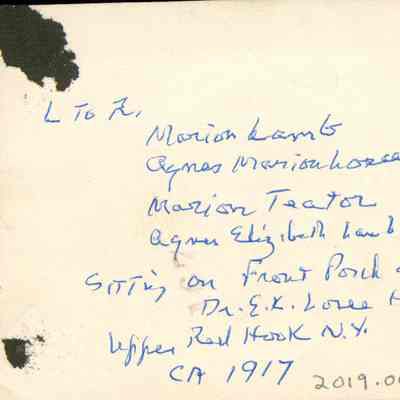 L To R,
Marion Lamb
Agnes Marion Losee
Marion Teator
Agnes Elizabeth Lamb
Sitting on Front Porch
Dr. E.K. Losee H
Upper Red Hook N.Y.
CA 1917
2019.0